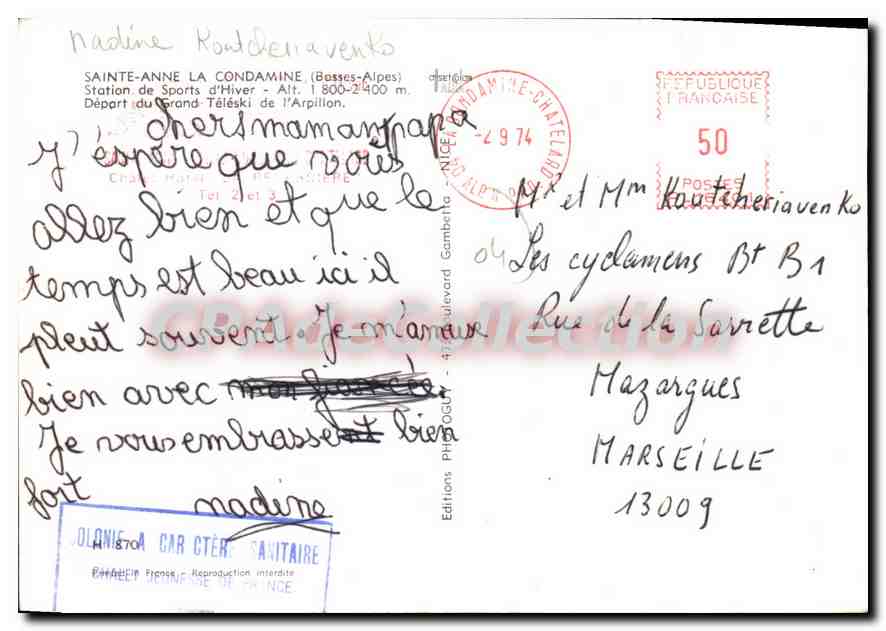 nadine Koutcheriavenko
SAINTE-ANNE LA CONDAMINE (Basses-Alpes)
Station de Sports d'Hiver - Alt. 1 800-2 400 m.
Départ du Grand Téléski de l'Arpillon.
chers maman papa
J'éspère que vous
allez bien et que le
temps est beau ici il
pleut souvent. Je m'amuse
bien avec
Je vous embrasse bien
fort
nadine
COLONIE A CAR CTÈRE SANITAIRE
CHALET JEUNESSE DE FRANCE
H 870
France - Reproduction interdite
Tél. 2 et 3
Editions PHOTOGUY - 47, Boulevard Gambetta - NICE
04 LA CONDAMINE-CHATELARD
-4 9 74
REPUBLIQUE
FRANCAISE
50
POSTES
Mr et Mm Koutcheriavenko
04 Les cyclamens Bt B1
Rue de la Sarrette
Mazargues
MARSEILLE
13009
CPAdeCollection